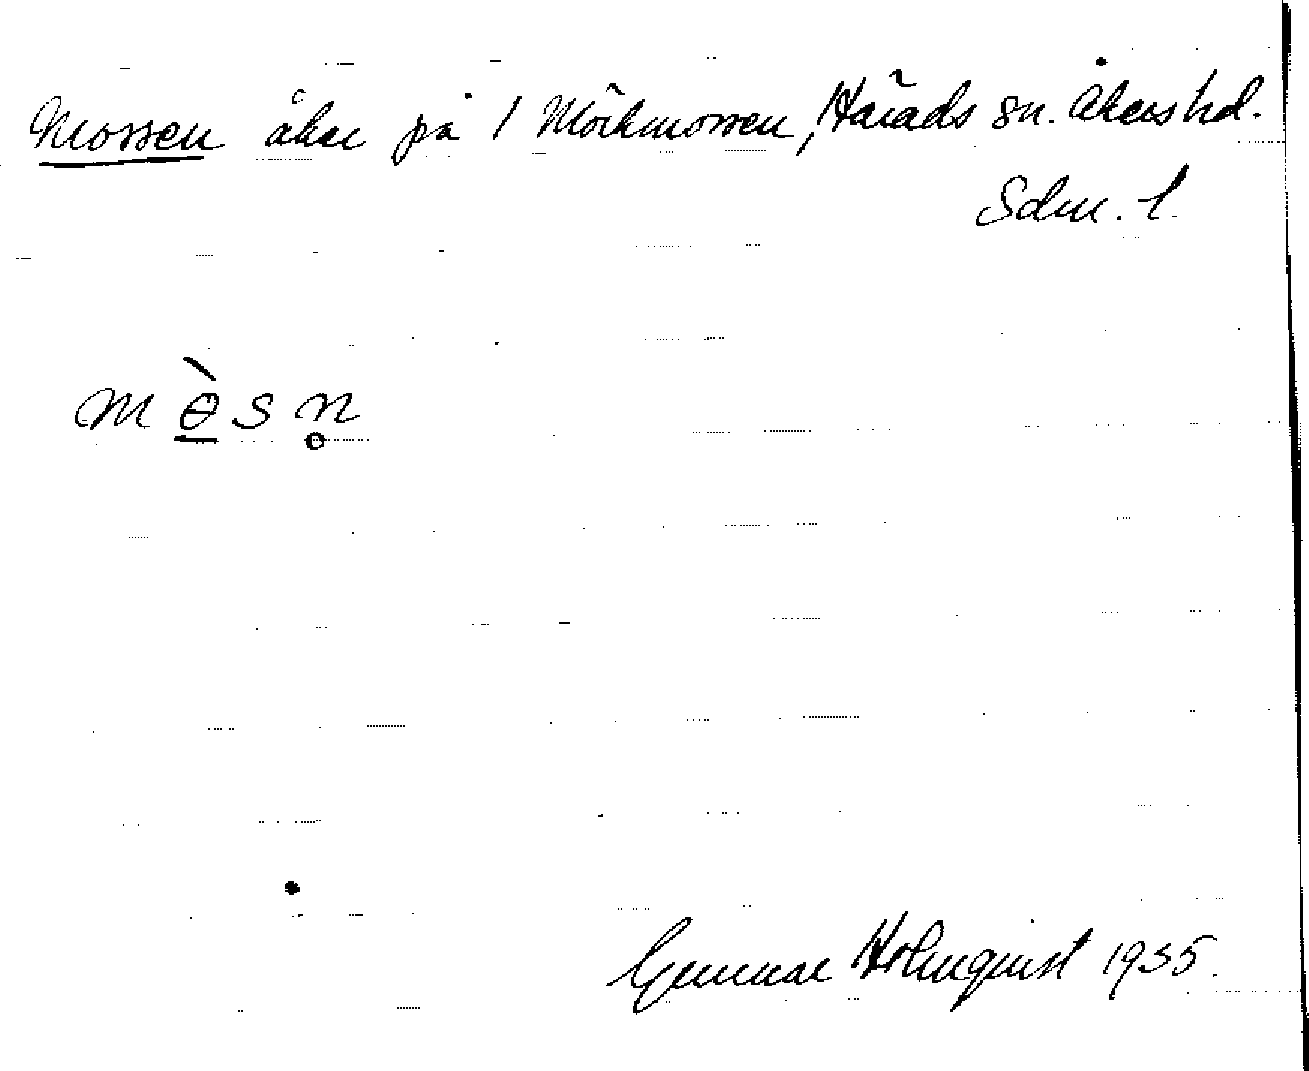 Mossen åker på 1 Mörkmossen, Härads sn. Åkers hd.
Sdm. l.
m ɵ̤̀ s n̥
Gunnar Holmquist 1935.